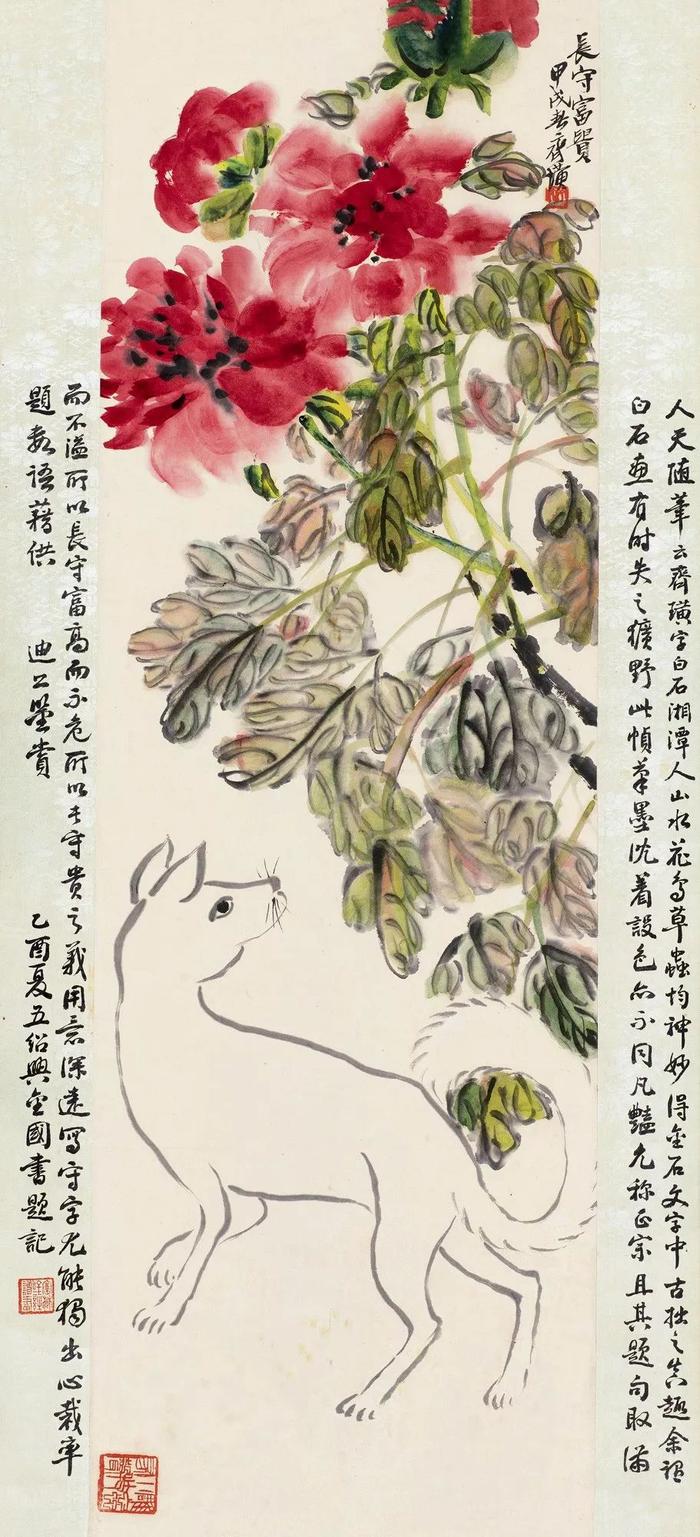 長守富貴
甲戌春齊璜
人天隨筆云齊璜字白石湘潭人山水花鳥草蟲均神妙得金石文字中古拙之真趣余謂
白石畫有時失之獷野此幀筆墨沈着設色亦不同凡豔尤称正宗且其題句取滿
而不溢所以長守富高而不危所以長守貴之義用意深遠寫守字尤能獨出心裁率
題數語藉供 迪公鑒賞 乙酉夏五紹興金國書題記